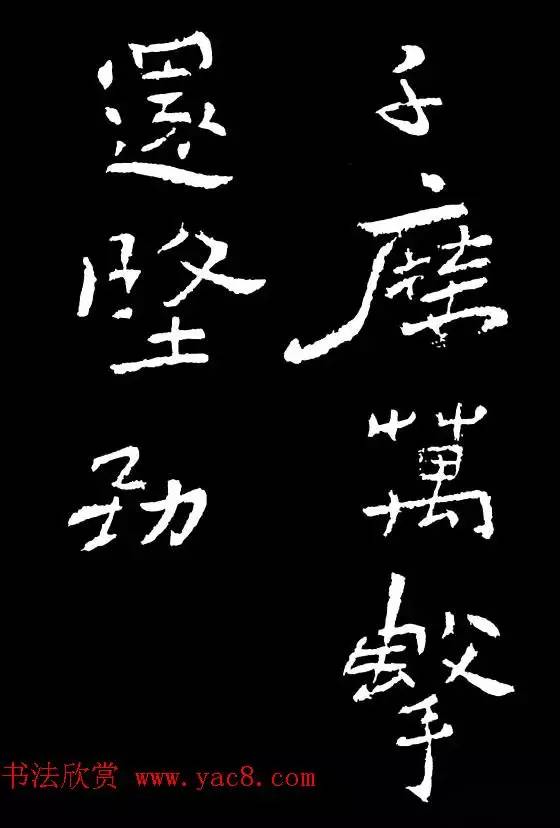 千磨萬擊
還堅勁
书法欣赏 www.yac8.com